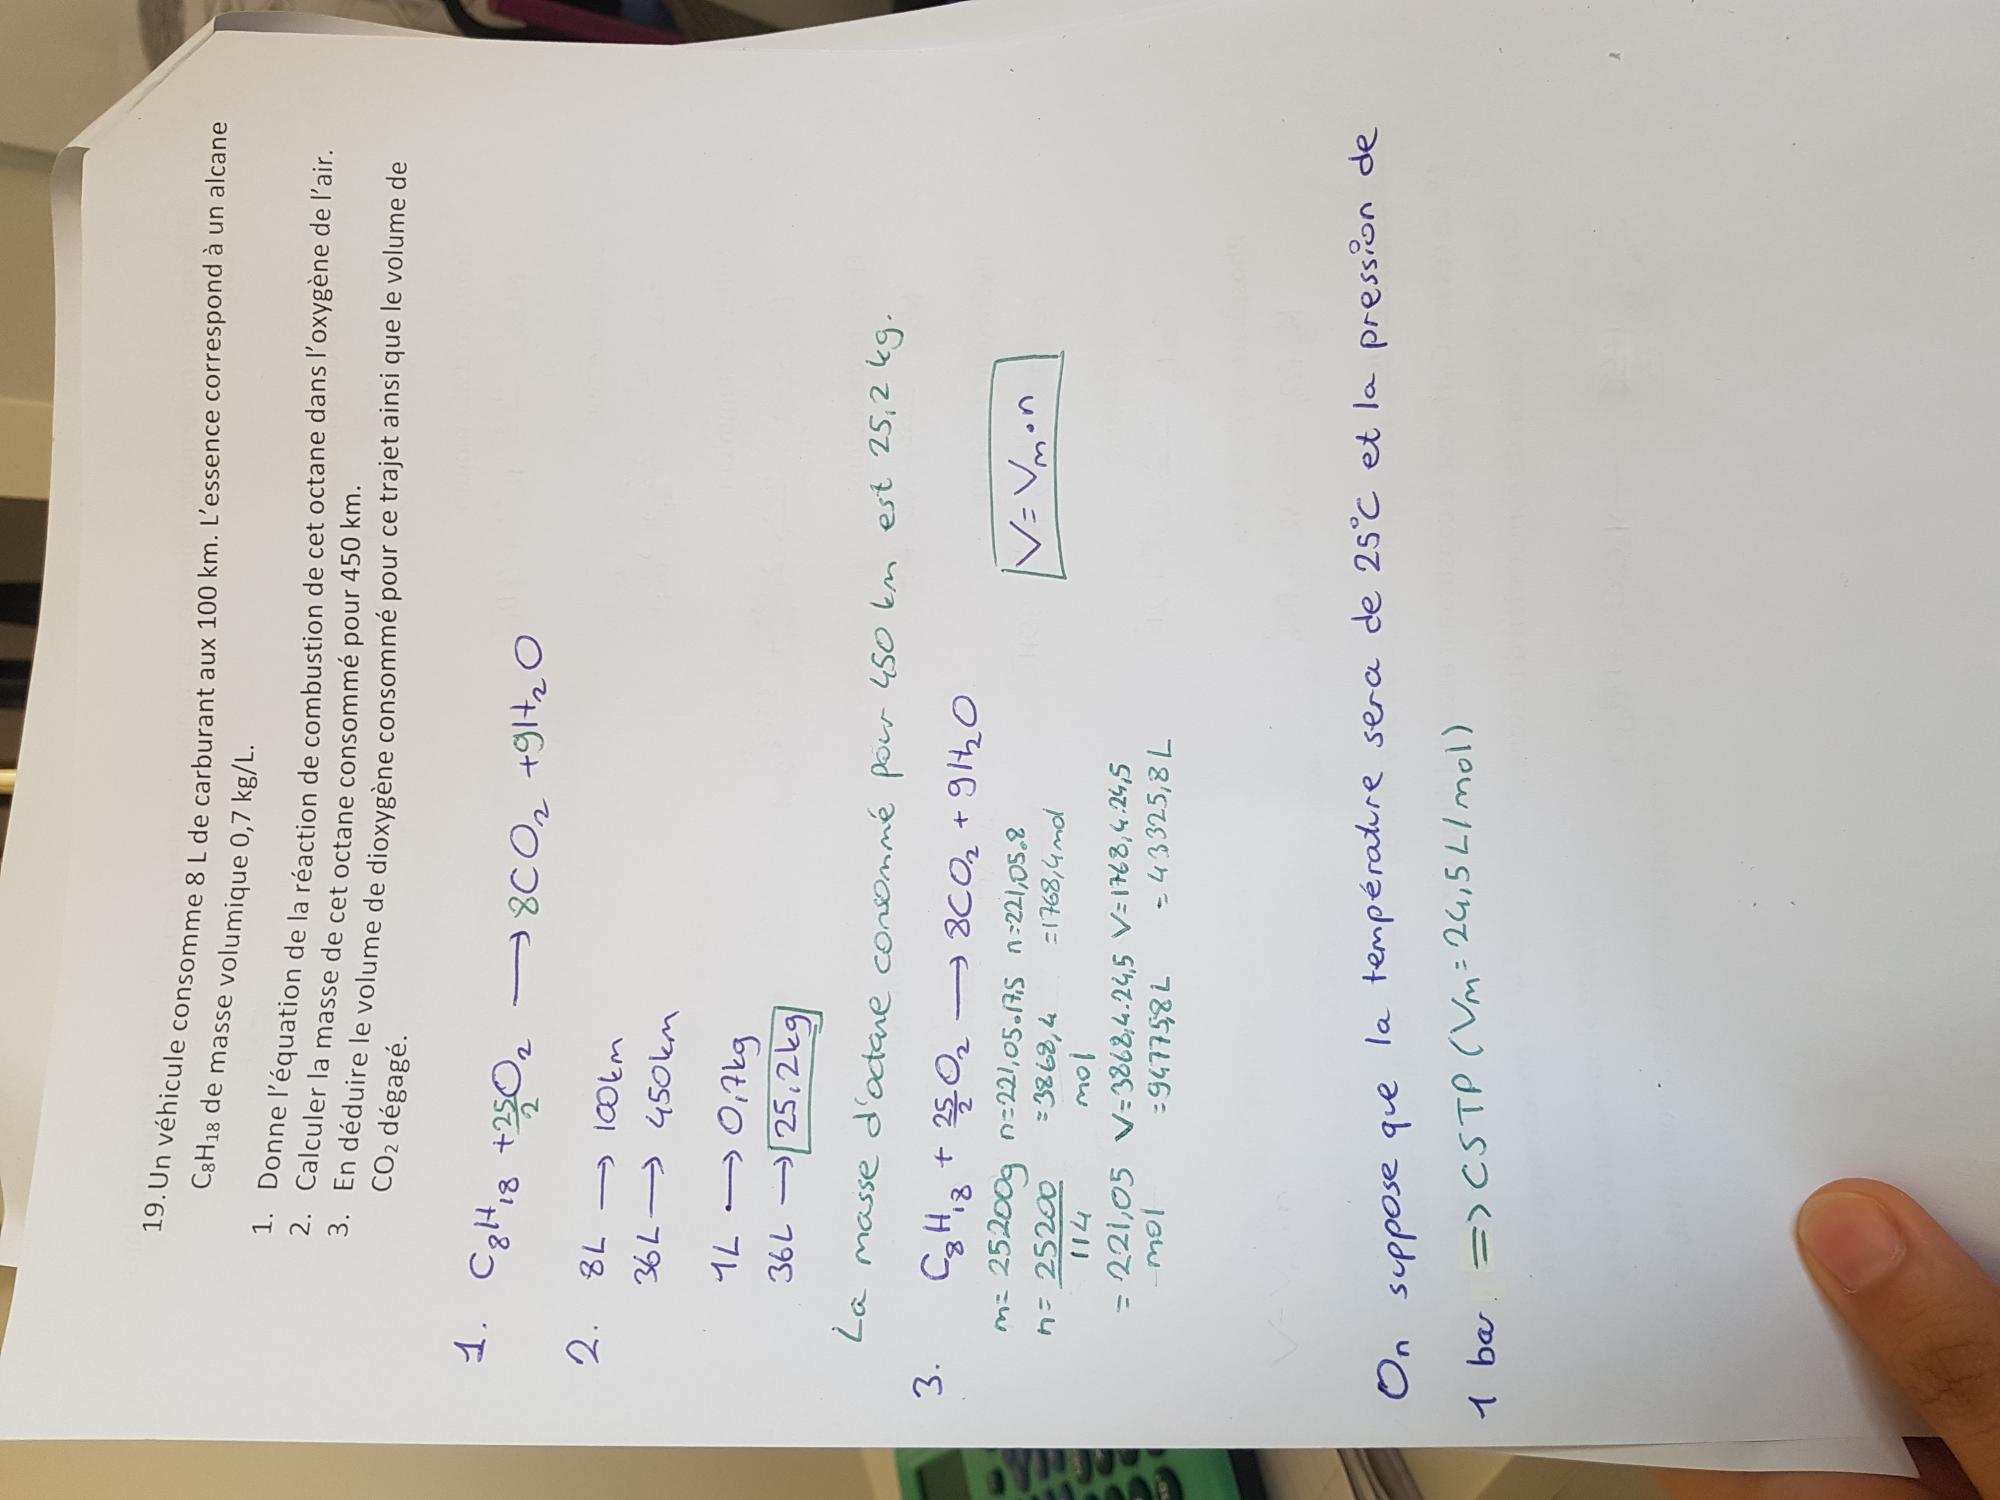 19. Un véhicule consomme 8 L de carburant aux 100 km. L'essence correspond à un alcane
C₈H₁₈ de masse volumique 0,7 kg/L.
1. Donne l'équation de la réaction de combustion de cet octane dans l'oxygène de l'air.
2. Calculer la masse de cet octane consommé pour 450 km.
3. En déduire le volume de dioxygène consommé pour ce trajet ainsi que le volume de
CO₂ dégagé.
1. C₈H₁₈ + 25/2 O₂ → 8CO₂ + 9H₂O
2. 8L → 100km
36L → 450km
1L → 0,7kg
36L → 25,2kg
La masse d'octane consommé pour 450 km est 25,2 kg.
3. C₈H₁₈ + 25/2 O₂ → 8CO₂ + 9H₂O
V = Vm·n
m = 25200g n=221,05·17,5 n=221,05·8
n = 25200/114 =3868,4 mol =1768,4mol
= 221,05 mol V=3868,4·24,5 V=1768,4·24,5
=94775,8L = 43325,8L
On suppose que la température sera de 25°C et la pression de
1 bar. => CSTP (Vm = 24,5L/mol)